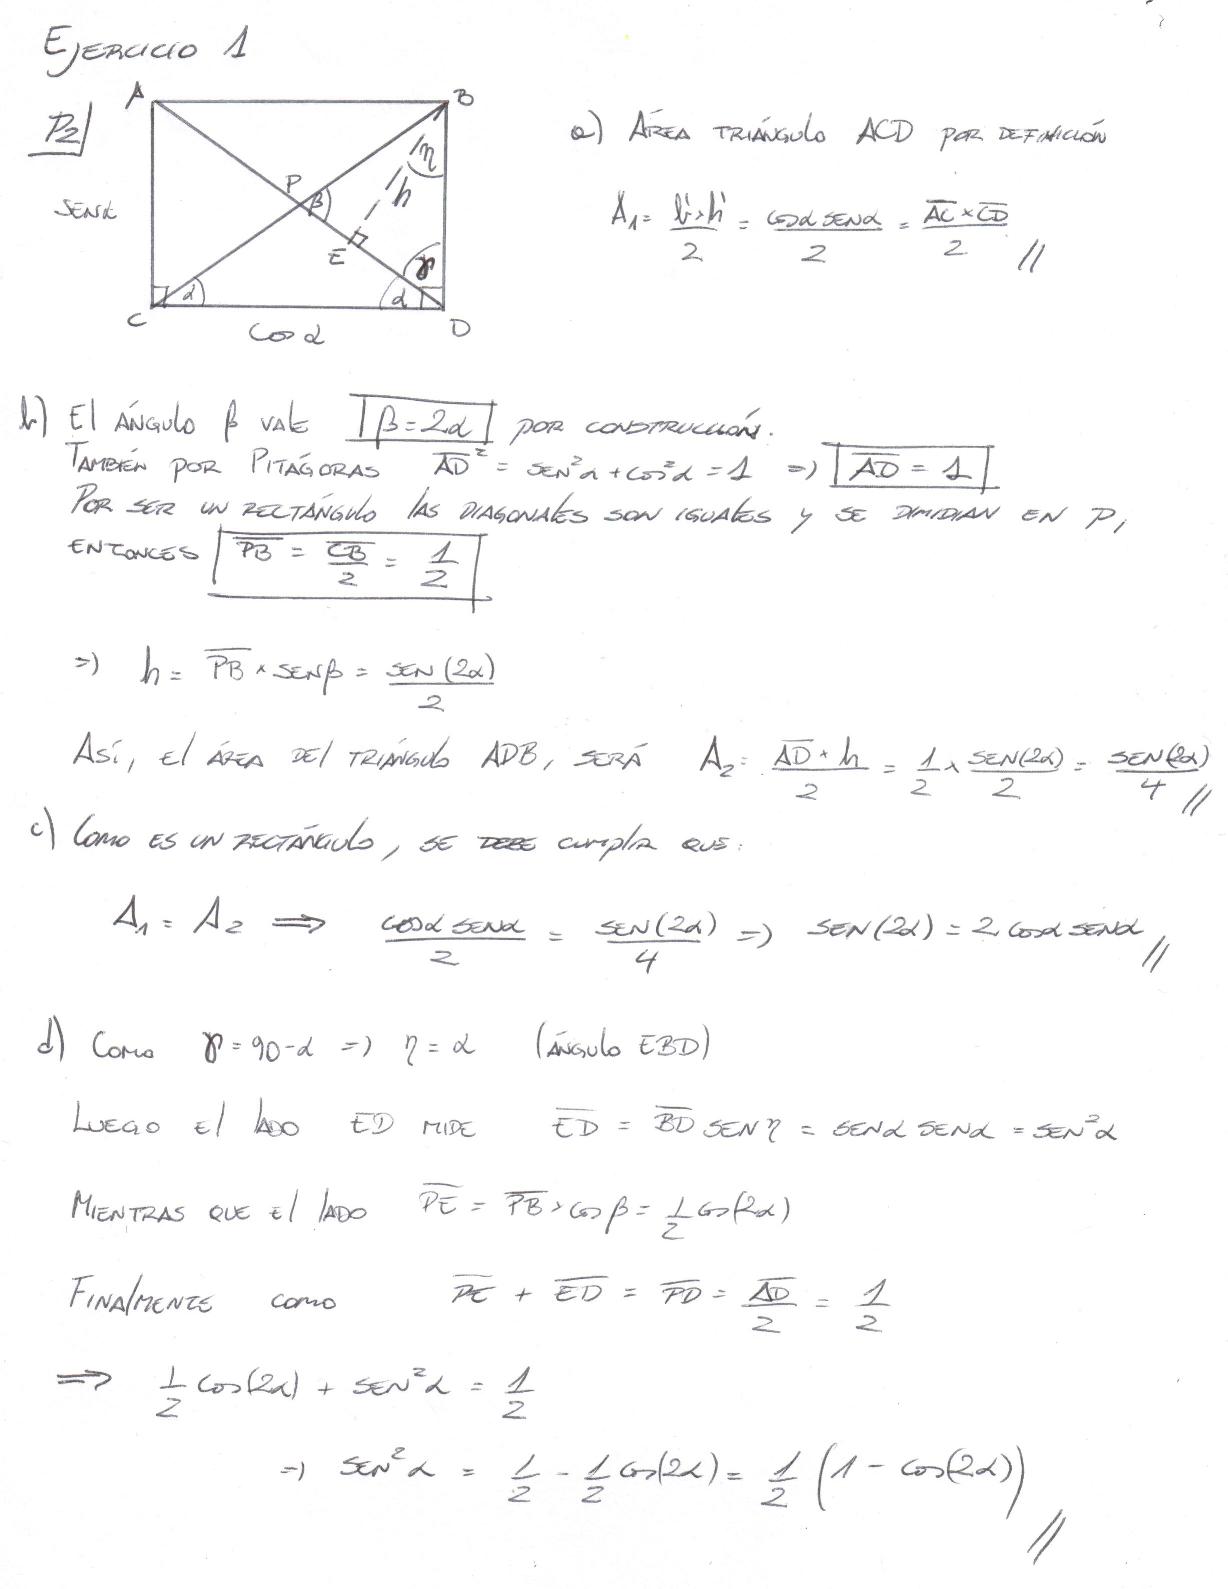 EJERCICIO 1
P2
A
B
η
P
β
h
SENα
E
γ
α
α
C
D
cos α
a) ÁREA TRIÁNGULO ACD POR DEFINICIÓN
A₁ = b×h/2 = cosα SENα/2 = AC × CD/2 //
b) El ÁNGULO β VALE β = 2α POR CONSTRUCCIÓN.
TAMBIÉN POR PITÁGORAS AD² = SEN²α + cos²α = 1 => AD = 1
POR SER UN RECTÁNGULO LAS DIAGONALES SON IGUALES Y SE DIMIDIAN EN P,
ENTONCES PB = CB/2 = 1/2
=> h = PB × SENβ = SEN(2α)/2
ASÍ, El ÁREA DEl TRIÁNGULO ADB, SERÁ A₂ = AD × h/2 = 1/2 × SEN(2α)/2 = SEN(2α)/4 //
c) COMO ES UN RECTÁNGULO, SE DEBE CUMPLIR QUE:
A₁ = A₂ ⟹ cosα SENα/2 = SEN(2α)/4 => SEN(2α) = 2 cosα SENα //
d) COMO γ = 90-α => η = α (ÁNGULO EBD)
LUEGO El lADO ED MIDE ED = BD SEN η = SENα SENα = SEN²α
MIENTRAS QUE El lADO PE = PB × cos β = 1/2 cos(2α)
FINAlMENTE COMO PE + ED = PD = AD/2 = 1/2
⟹ 1/2 cos(2α) + SEN²α = 1/2
=> SEN²α = 1/2 - 1/2 cos(2α) = 1/2 (1 - cos(2α)) //